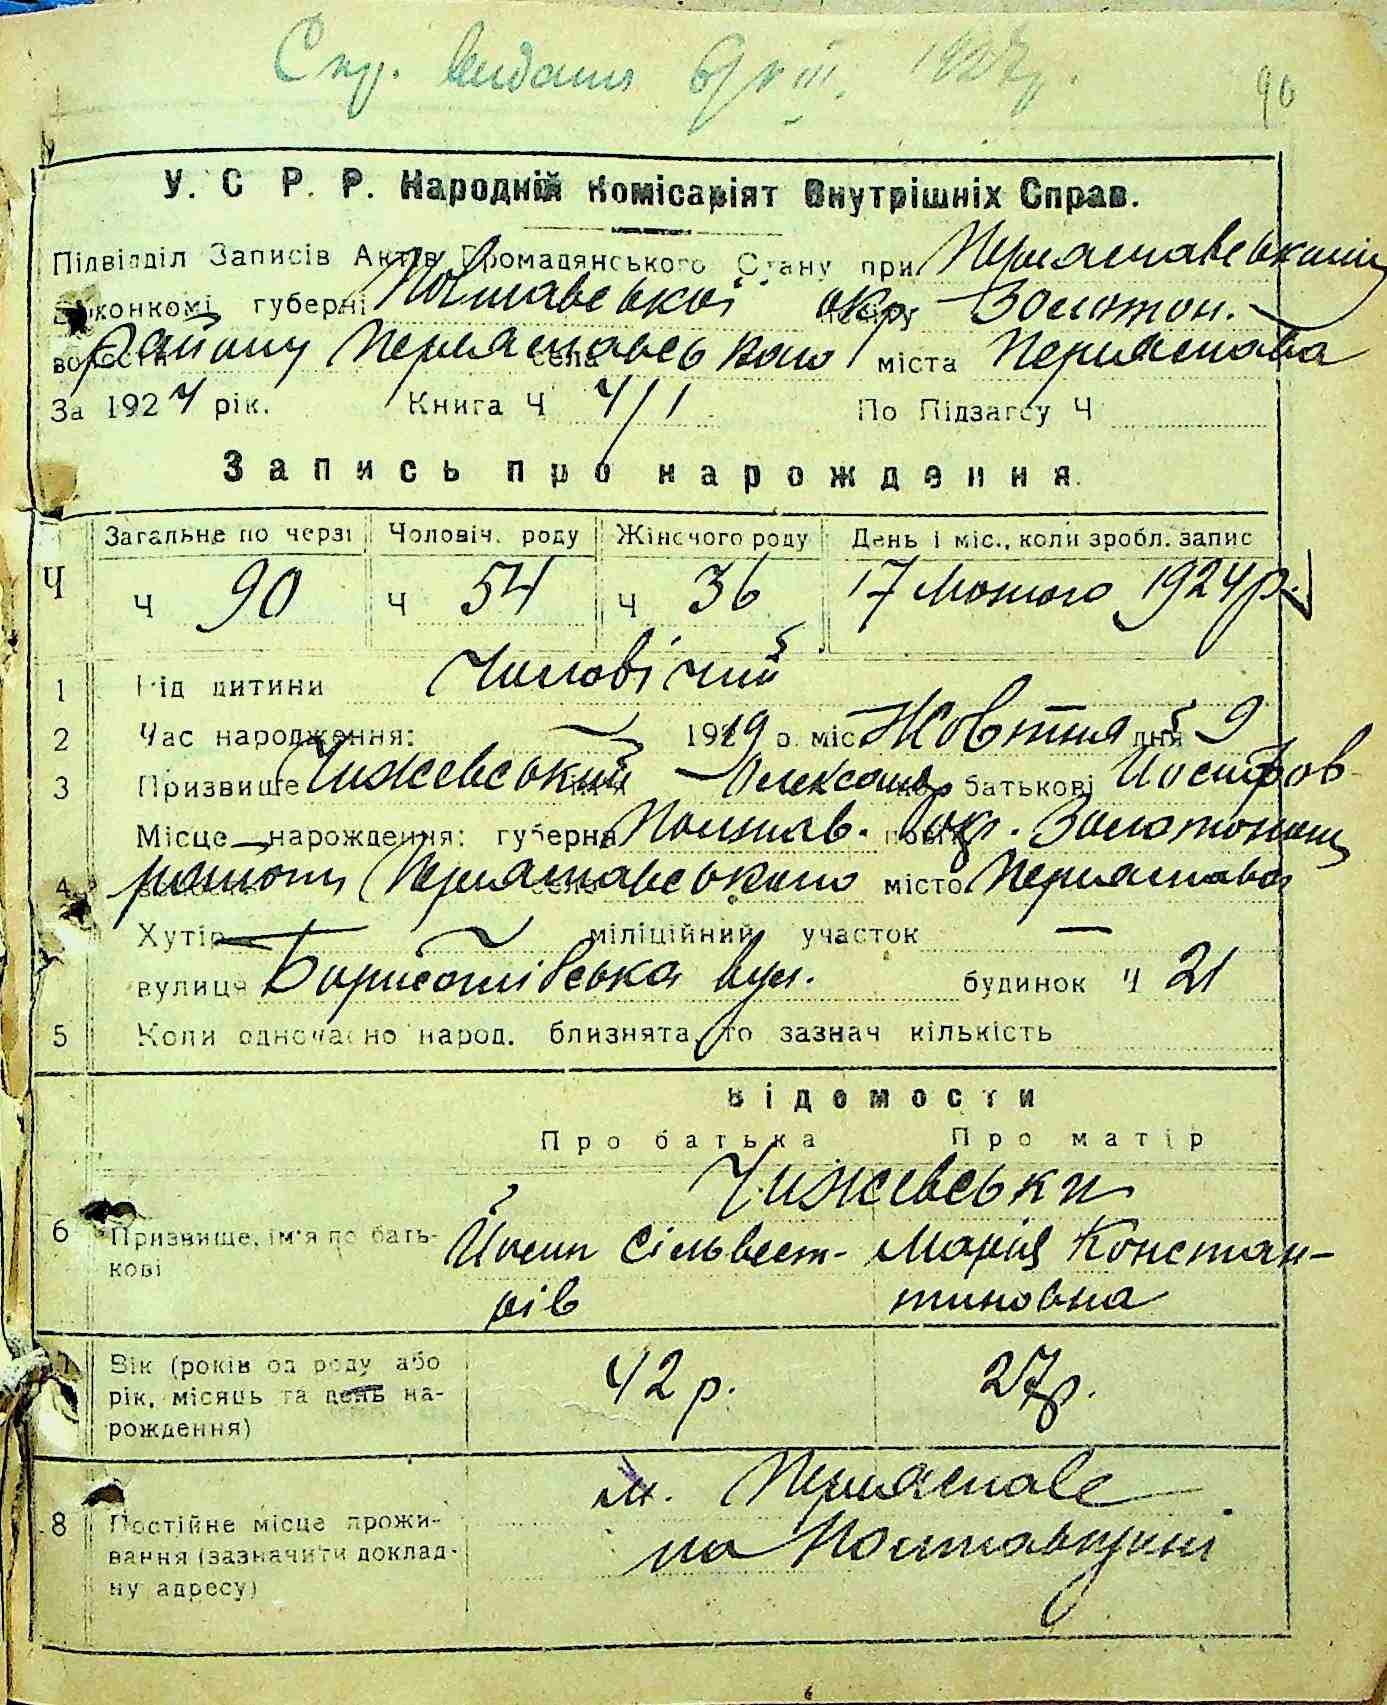 видання 6/VIII. 1927р.
90
У. С Р. Р. Народній Комісаріят Внутрішніх Справ.
Підвідділ Записів Актів Громадянського Стану при Переяславському
конкомі губерні Полтавської окр. Золотон.
волости району Переяславського села міста Переяслава
За 1924 рік. Книга Ч 4/1 По Підзагсу Ч
Запись про народження.
Загальне по черзі Чоловіч. роду Жіночого роду День і міс., коли зробл. запис
Ч ч 90 ч 54 ч 36 17 Лютого 1924р.
1 Рід дитини Чоловічий
2 Час народження: 1919 о. міс Жовтня дня 9
3 Призвище Чижевський Олександр батькові Йосипов
Місце народження: губерня Полтав. окр. Золотонош
4 району Переяславського село місто Переяслава
Хутір — міліційний участок —
вулиця Борисоглібська вул. будинок ч 21
5 Коли одночасно народ. близнята, то зазнач кількість
Відомости
Про батька Про матір
Чижевськи
6 Призвище, ім'я по бать- Йосип Сільвест- Марія Констан-
кові рів тиновна
7 Вік (років од роду або 42 р. 27р.
рік, місяць та день на-
рождення)
м. Переяслав
8 Постійне місце прожи- на Полтавщині
вання (зазначити доклад-
ну адресу)
6